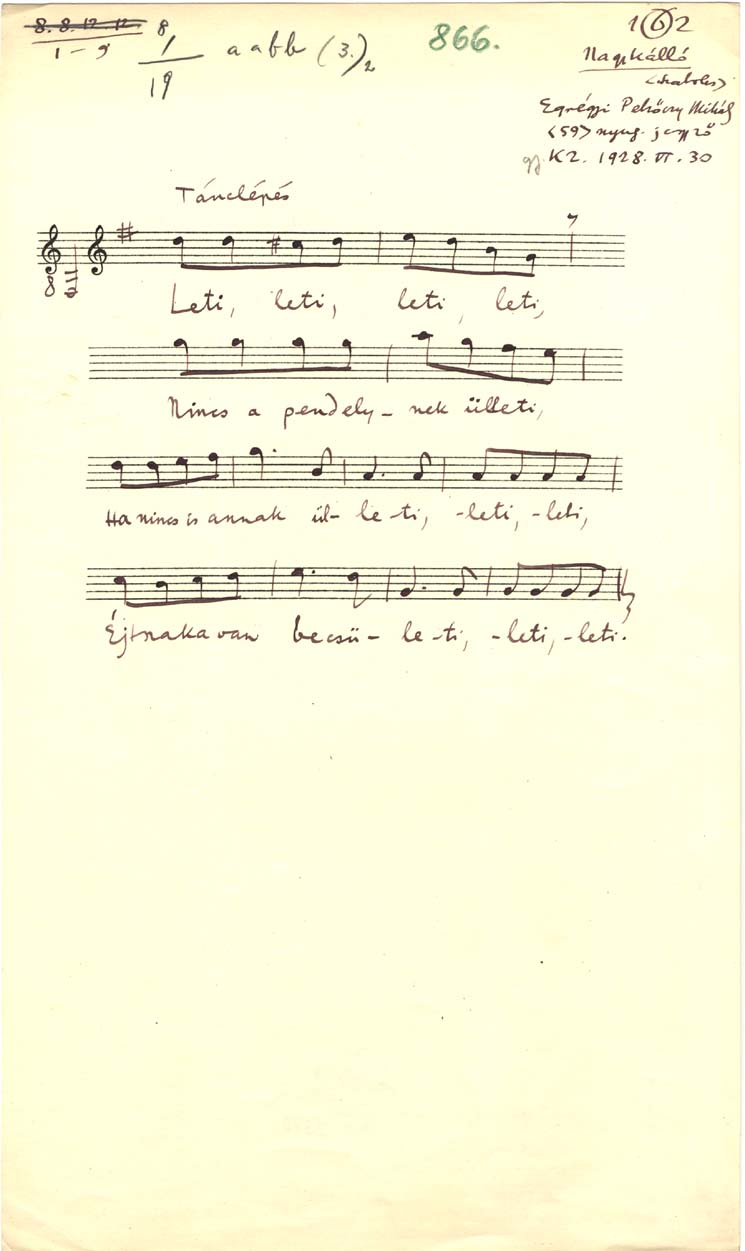 8. 8. 12. 12. 8
1 – 9
1
19
a a b b (3.) 2
866.
1 (6) 2
Nagykálló
(Szabolcs)
Egrégyi Mihály
(59) nyug. jegyző
gy. KZ. 1928. VI. 30
Tánclépés
7
8
Leti, leti, leti, leti,
Nincs a pendely - nek ülleti,
Ha nincs is annak ül- le -ti, -leti, -leti,
Éjtnaka van becsü - le -ti, -leti, -leti.